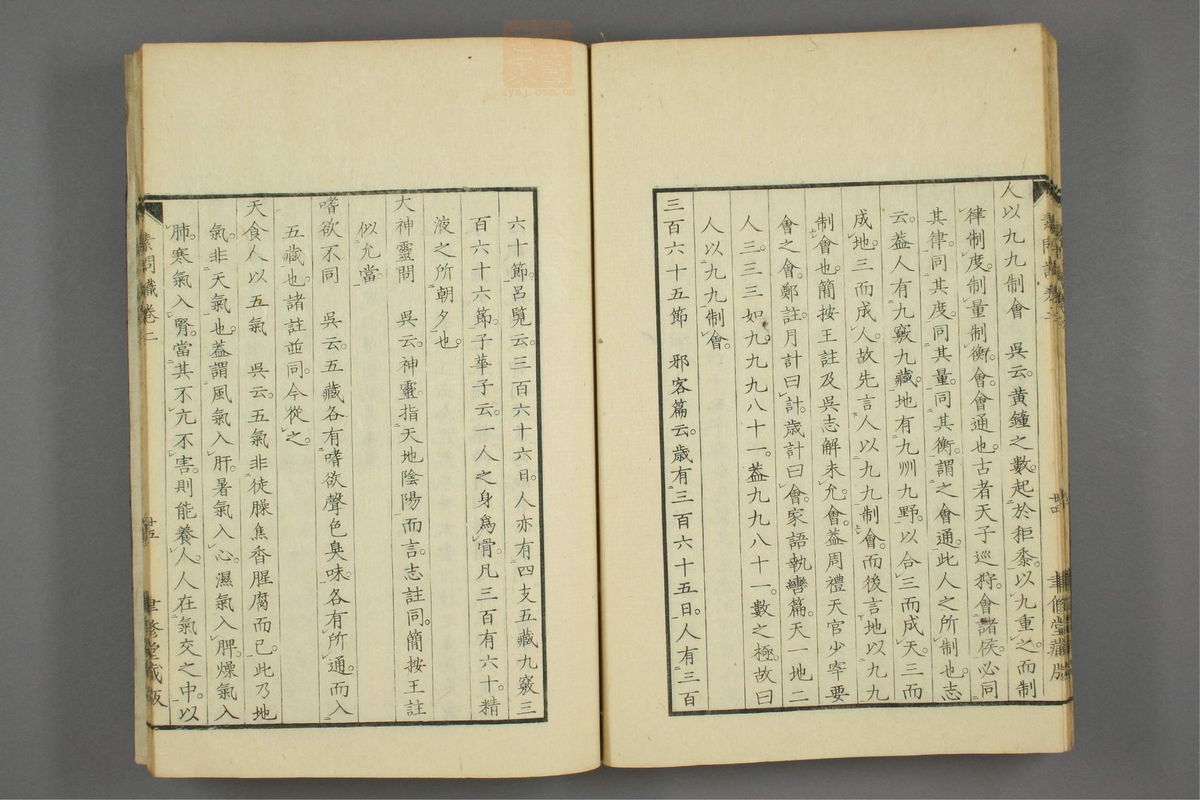 人以九九制會　吳云。黃鐘之數。起於秬黍。以九重之。而制
律制度。制量制衡。會會通也。古者天子巡狩。會諸侯。必同
其律。同其度。同其量。同其衡。謂之會通。此人之所制也。志
云。蓋人有九竅九藏。地有九州九野。以合三而成天。三而
成地。三而成人。故先言人以九九制會。而後言地以九九
制會也。簡按王註及吳志解未允。會。蓋周禮天官少宰要
會之會。鄭註。月計曰計。歲計曰會。家語執轡篇。天一地二
人三。三三如九。九九八十一。蓋九九八十一。數之極。故曰
人以九九制會。
三百六十五節　邪客篇云。歲有三百六十五日。人有三百
六十節。呂覽云。三百六十六日。人亦有四支五藏九竅三
百六十六節。子華子云。一人之身。爲骨。凡三百有六十。精
液之所朝夕也。
大神靈問　吳云。神靈。指天地陰陽而言。志註同。簡按王註
似允當。
嗜欲不同　吳云。五藏各有嗜欲。聲色臭味。各有所通。而入
五藏也。諸註並同。今從之。
天食人以五氣　吳云。五氣非徒臊焦香腥腐而已。此乃地
氣。非天氣也。蓋謂風氣入肝。暑氣入心。濕氣入脾。燥氣入
肺。寒氣入腎。當其不亢不害。則能養人。人在氣交之中。以
素問識卷二
廿五
聿修堂藏版
素問識卷二
廿四
聿修堂藏版